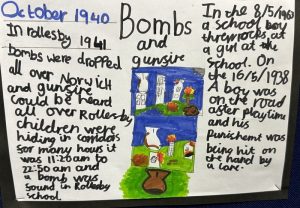 October 1940
In rollesby 1941
bombs were dropped
all over Norwich
and gunsire
could be heard
all over Rollesby
children were
hiding in corridors
for many hours it
was 11:20am to
22:50 am and
a bomb was
found in Rollesby
school
Bombs
and
gunsire
In the 8/5/1963
a school boy
threw rocks at
a girl at the
school. On
the 16/5/1938
A boy was
on the road
after playtime
and his
Punishemt was
being hit on
the hand by
a cane.